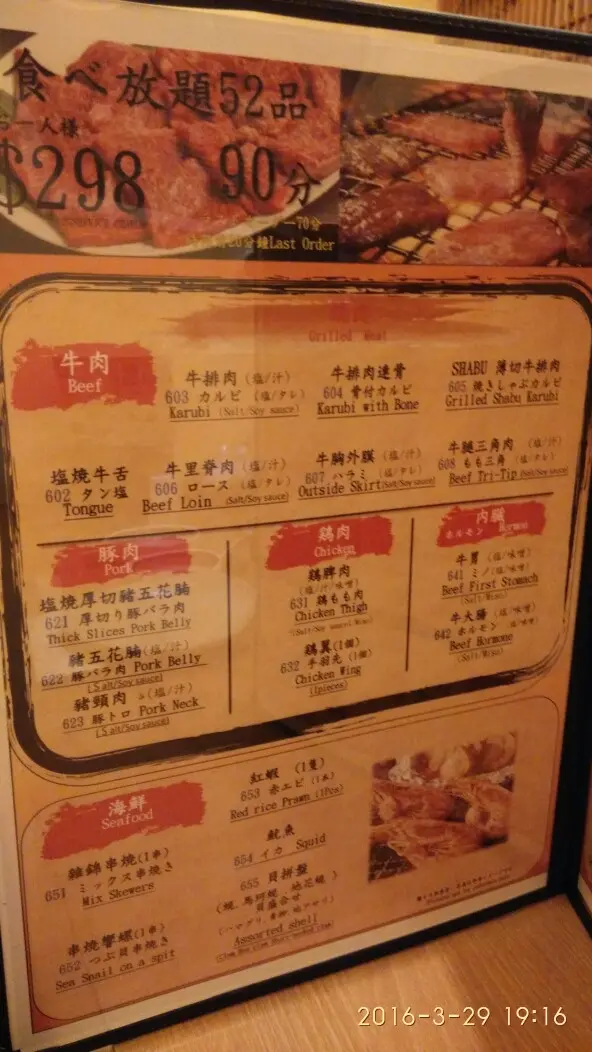 食べ放題52品
お一人様
$298 90分
70分
Last Order
Grilled Meat
牛肉
Beef
牛排肉 (塩/汁)
603 カルビ (塩/タレ)
Karubi (Salt/Soy sauce)
牛排肉連骨
604 骨付カルビ
Karubi with Bone
SHABU 薄切牛排肉
605 焼きしゃぶカルビ
Grilled Shabu Karubi
塩焼牛舌
602 タン塩
Tongue
牛里脊肉 (塩/汁)
606 ロース (塩/タレ)
Beef Loin (Salt/Soy sauce)
牛胸外膜 (塩/汁)
607 ハラミ (塩/タレ)
Outside Skirt (Salt/Soy sauce)
牛腿三角肉 (塩/汁)
608 もも三角 (塩/タレ)
Beef Tri-Tip (Salt/Soy sauce)
豚肉
Pork
塩焼厚切豬五花腩
621 厚切り豚バラ肉
Thick Slices Pork Belly
豬五花腩 (塩/汁)
622 豚バラ肉 Pork Belly
(Salt/Soy sauce)
豬頸肉 (塩/汁)
623 豚トロ Pork Neck
(Salt/Soy sauce)
鶏肉
Chicken
鶏脾肉
(塩/汁/味噌)
631 鶏もも肉
Chicken Thigh
(Salt/Soy sauce/Miso)
鶏翼(1個)
632 手羽先 (1個)
Chicken Wing
(1pieces)
内臓
ホルモン Hormon
牛胃 (塩/味噌)
641 ミノ (塩/味噌)
Beef First Stomach
(Salt/Miso)
牛大腸 (塩/味噌)
642 ホルモン (塩/味噌)
Beef Hormone
(Salt/Miso)
海鮮
Seafood
雜錦串燒(1串)
651 ミックス串焼き
Mix Skewers
串燒響螺(1串)
652 つぶ貝串焼き
Sea Snail on a spit
紅蝦 (1隻)
653 赤エビ (1本)
Red rice Prawn (1Pcs)
魷魚
654 イカ Squid
655 貝拼盤
(蜆、馬珂蜆、花蜆)
貝盛合せ
Assorted shell
2016-3-29 19:16